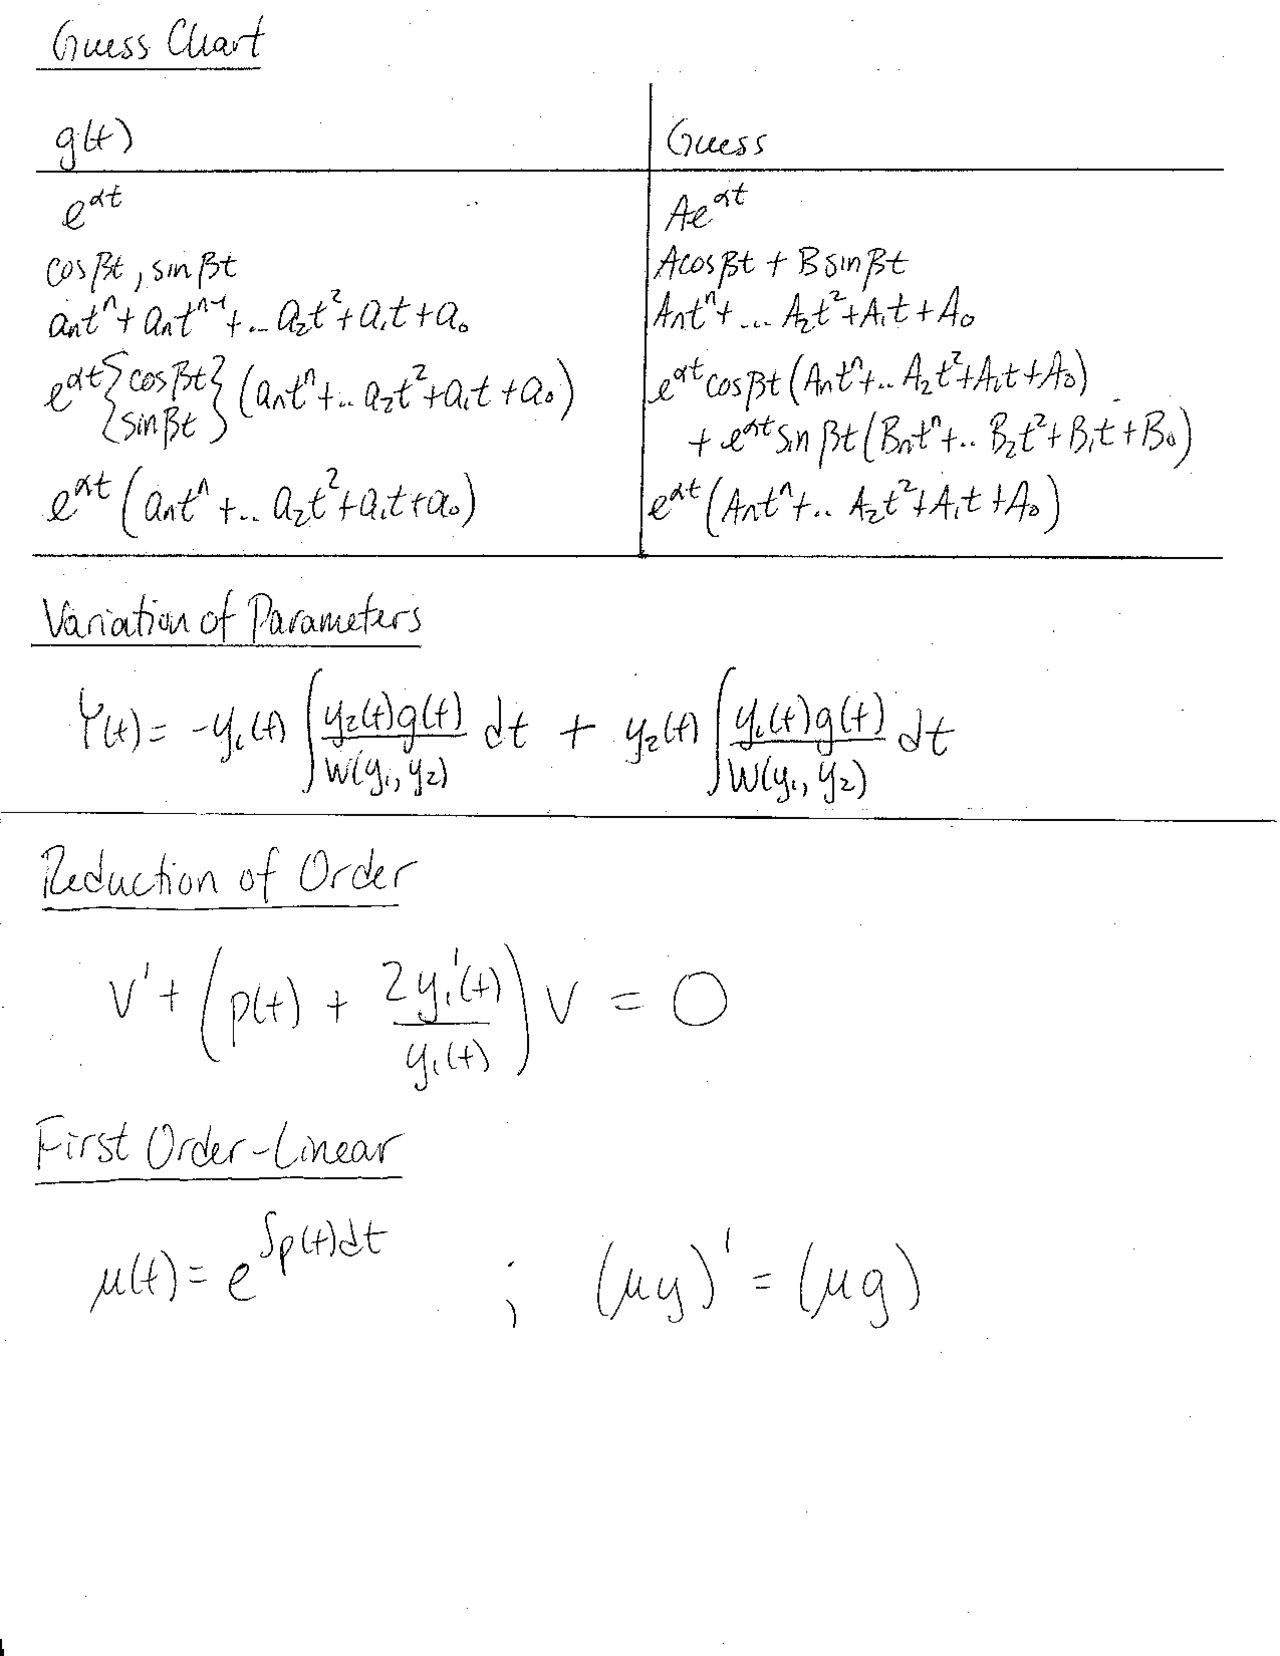 Guess Chart
g(t) Guess
e^{αt} Ae^{αt}
cosβt, sinβt Acosβt + Bsinβt
aₙtⁿ + aₙtⁿ⁻¹ + ... a₂t² + a₁t + a₀ Aₙtⁿ + ... A₂t² + A₁t + A₀
e^{αt} {cosβt sinβt} (aₙtⁿ + .. a₂t² + a₁t + a₀) e^{αt}cosβt(Aₙtⁿ + .. A₂t² + A₁t + A₀)
+ e^{αt}sinβt(Bₙtⁿ + .. B₂t² + B₁t + B₀)
e^{αt}(aₙtⁿ + .. a₂t² + a₁t + a₀) e^{αt}(Aₙtⁿ + .. A₂t² + A₁t + A₀)
Variation of Parameters
Y(t) = -y₁(t) ∫ y₂(t)g(t)/W(y₁, y₂) dt + y₂(t) ∫ y₁(t)g(t)/W(y₁, y₂) dt
Reduction of Order
v' + (p(t) + 2y₁'(t)/y₁(t)) v = 0
First Order-Linear
μ(t) = e^{∫p(t)dt} ; (μy)' = (μg)